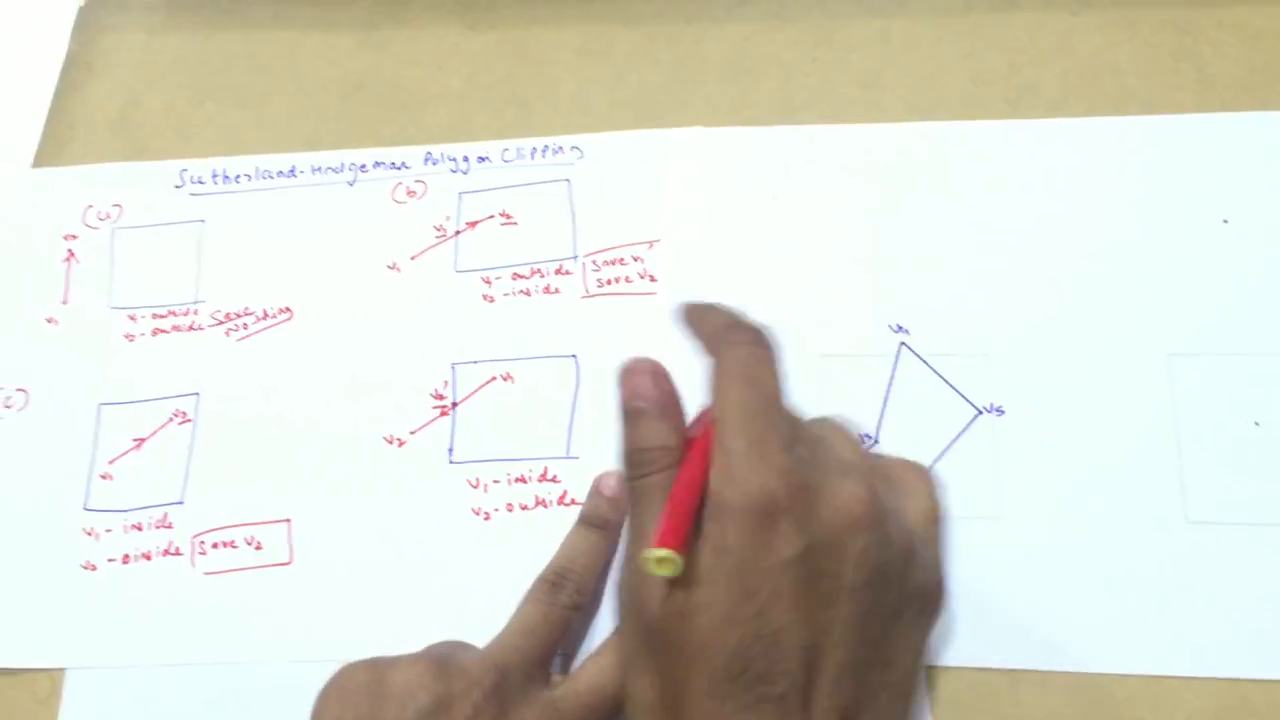 Sutherland-Hodgeman Polygon Clipping
(a)
v2
v1
v1-outside
v2-outside
Save
Nothing
(b)
v1'
v2
v1
v1-outside
v2-inside
Save v1'
Save v2
(c)
v2
v1
v1-inside
v2-inside
Save v2
v2'
v1
v2
v1-inside
v2-outside
V5